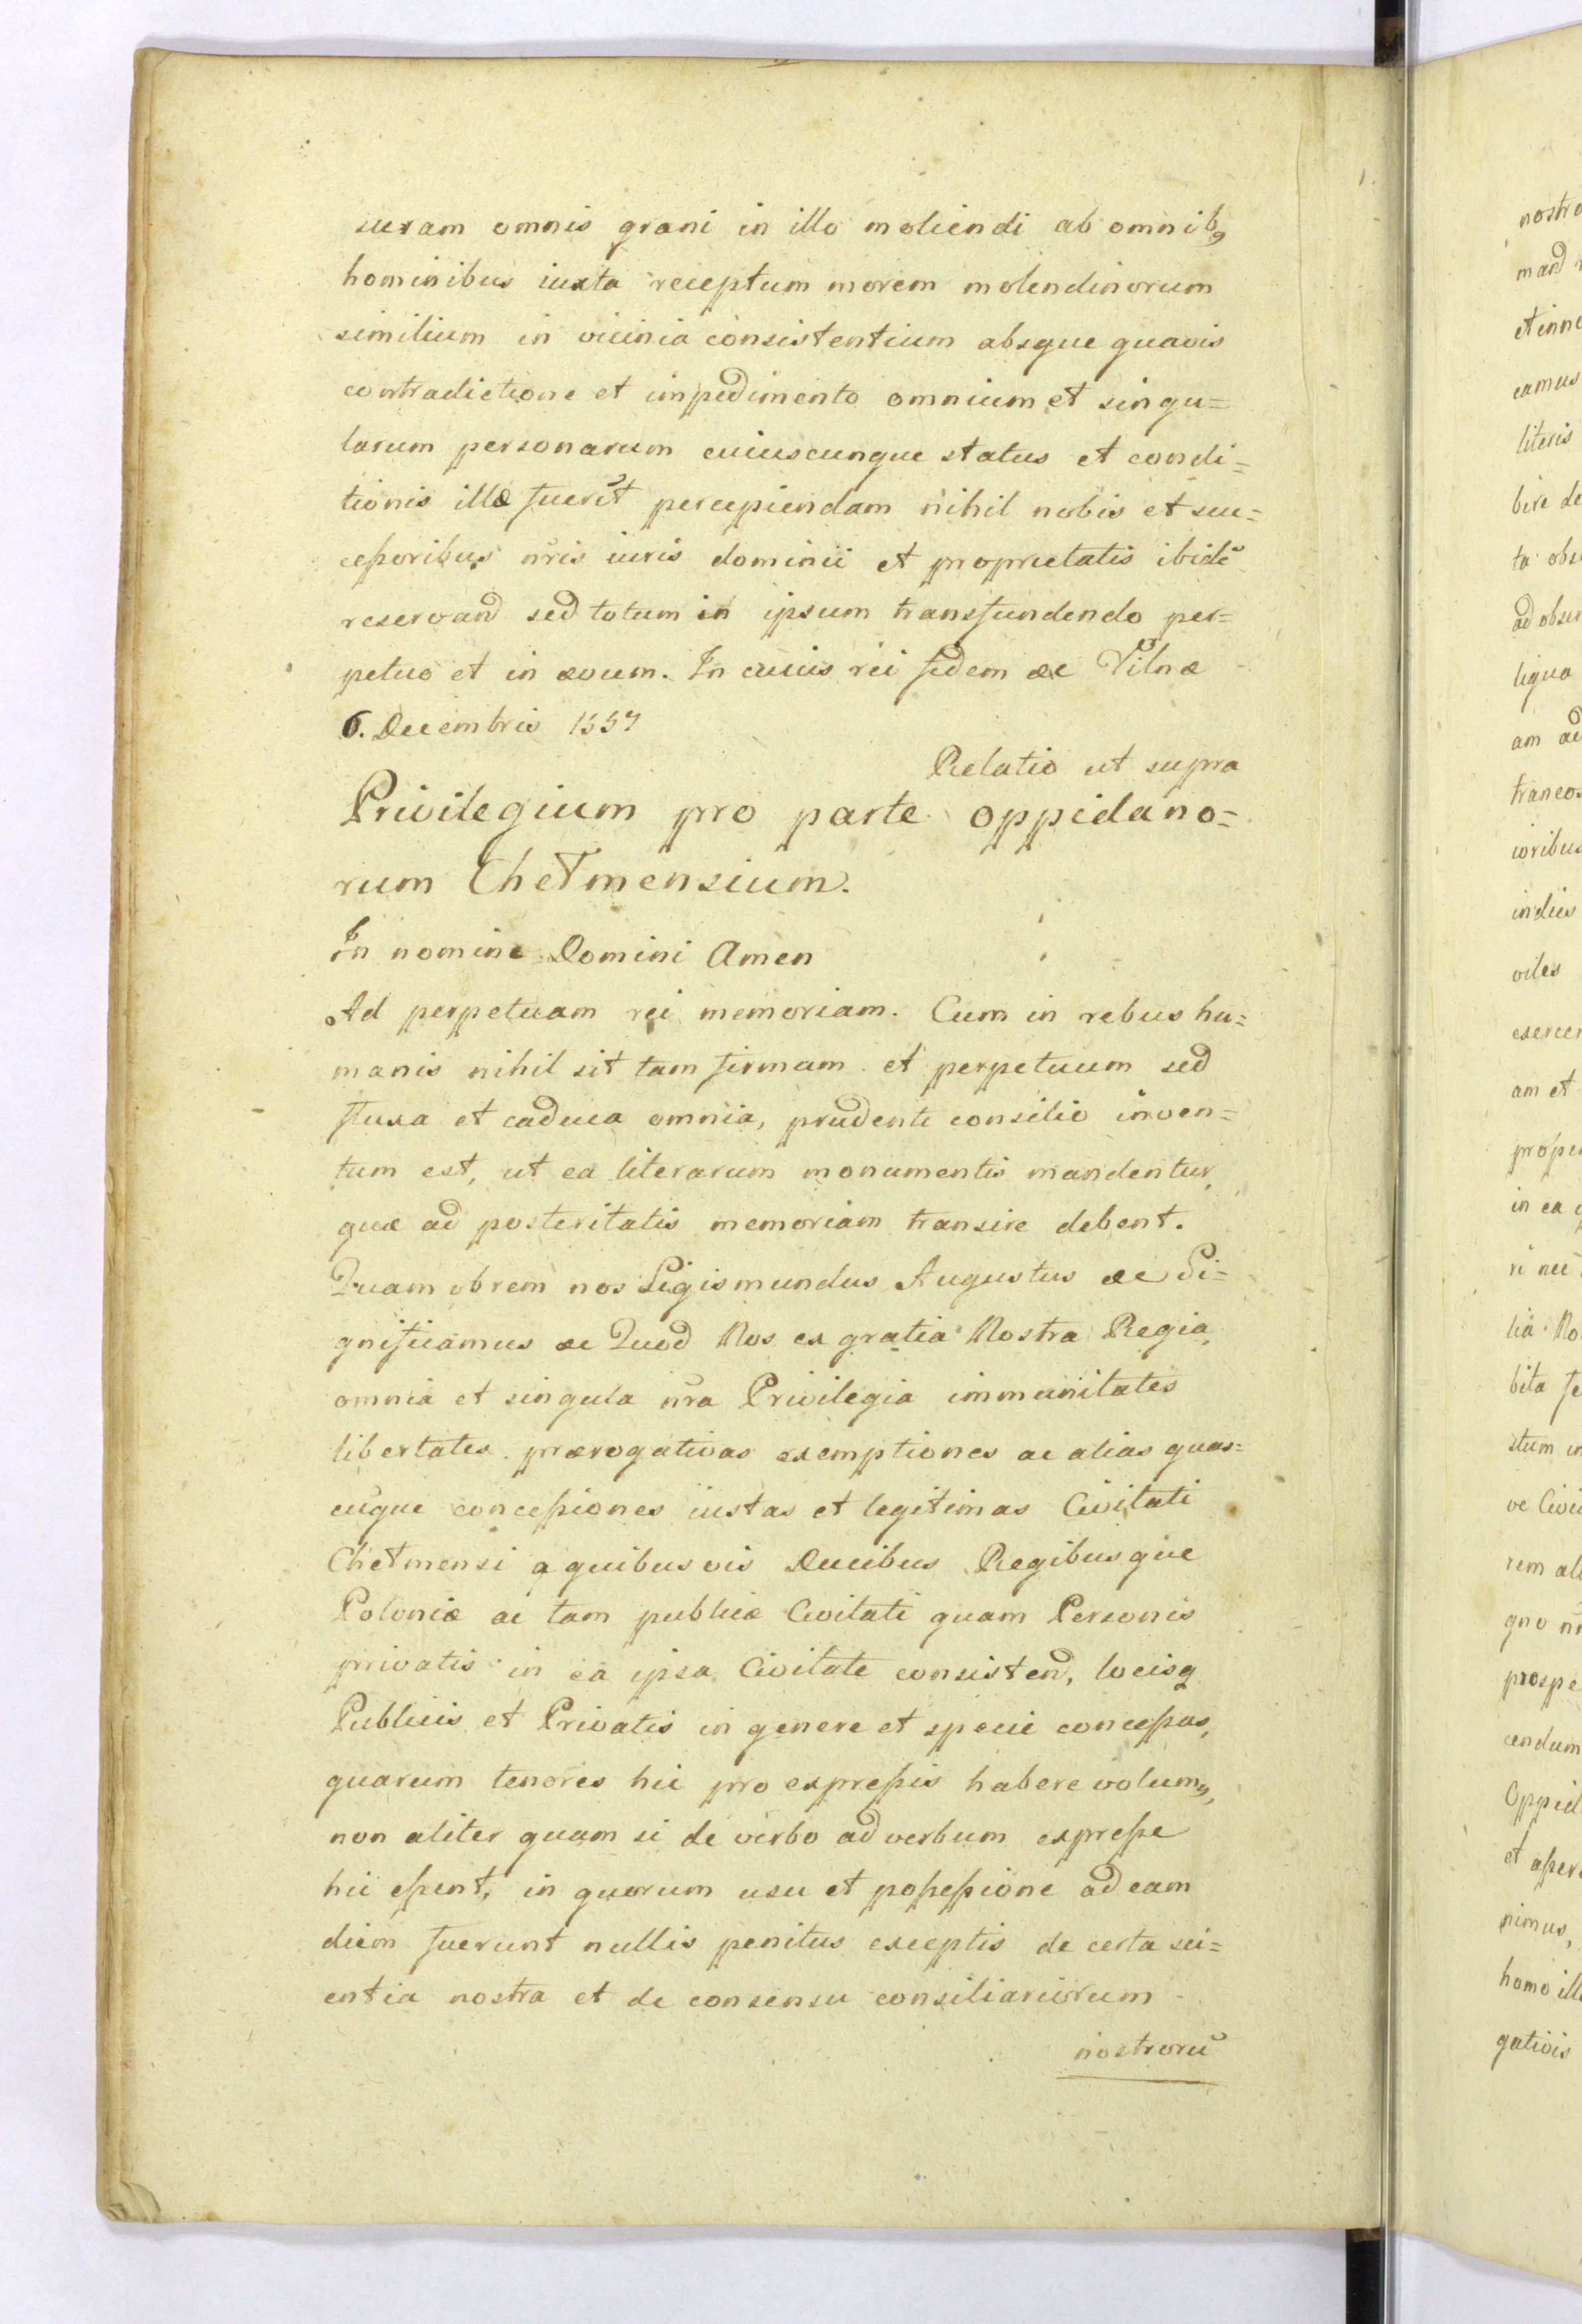 suram omnis grani in illo moliendi ab omnib9
hominibus iuxta receptum morem molendinorum
similium in vicinia consistentium absque quavis
contradictione et impedimento omnium et singu=
larum personarum cuiuscunque status et condi=
tionis illæ fuerĩt percepiendam nihil nobis et suc=
ceßoribus nr̃is iuris dominii et proprietatis ibidẽ
reservand sed totum in ipsum transfundendo per=
petuo et in ævum. In cuius rei fidem æc Vilnæ
6. Decembris 1557
Relatio ut supra
Privilegium pro parte oppidano=
rum Chełmensium.
In nomine Domini Amen
Ad perpetuam rei memoriam. Cum in rebus hu=
manis nihil sit tam firmam et perpetuum sed
fluxa et caduca omnia, prudenti consilio inven=
tum est, ut ea literarum monumentis mandentur,
quæ ad posteritatis memoriam transire debent.
Quam obrem nos Sigismundus Augustus æc Si=
gnificamus æc Quod Nos ex gratia Nostra Regia,
omnia et singula nr̃a Privilegia immunitates
libertates prærogativas exemptiones ac alias quas=
cũque conceßiones iustas et legitimas Civitati
Chełmensi a quibusvis Ducibus Regibusque
Poloniæ ac tam publicæ Civitati quam Personis
privatis in ea ipsa Civitate consistend, locisq
Publicis et Privatis in genere et specie conceßas,
quarum tenores hic pro expreßis habere volum9,
non aliter quam si de verbo ad verbum expreße
hic eßent, in quorum usu et poßeßione ad eam
diem fuerunt nullis penitus exceptis de certa sci=
entia nostra et de consensu consiliariorum
nostrorũ